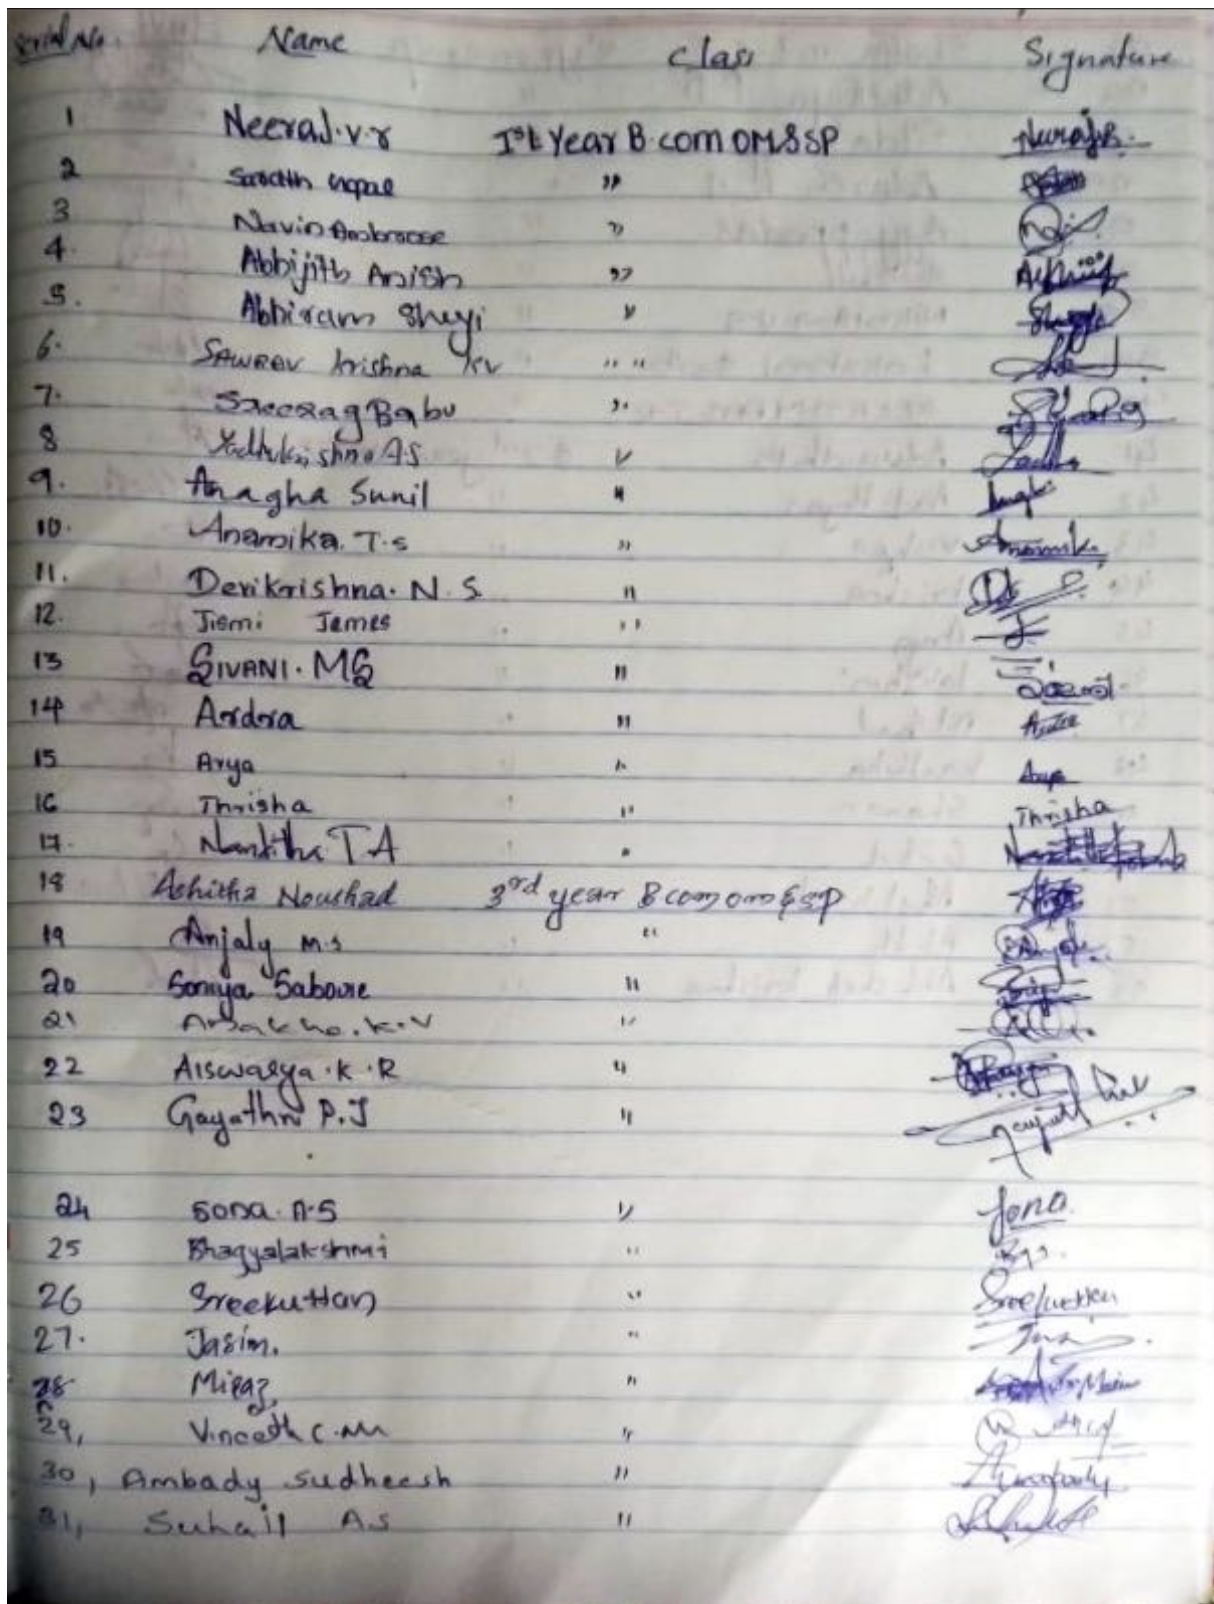 Serial No. Name Class Signature
1 Neeraj.V.R Ist Year B.com OM&SP Neeraj.
2 Sarath Gopal "
3 Navin Ambroose "
4. Abhijith Anish "
5. Abhiram Sheyi "
6. SAWRAV Krishna KV " "
7. Sreerag Babu "
8 Yadhukrishna A.S "
9. Anagha Sunil "
10. Anamika. T.s " Anamika
11. Devikrishna. N. S. "
12. Jismi James "
13 SIVANI. MS "
14 Ardra " Ardra
15 Arya " Arya
16 Thrisha " Thrisha
17. Nanditha T A "
18 Ashitha Noushad 3rd year B com om & SP
19 Anjaly M.S "
20 Soniya Saboure "
21 K.V "
22 Aiswarya.K.R "
23 Gayathri P.J "
24 Sona.A.S " Sona.
25 Bhagyalakshmi "
26 Sreekuttan " Sreekuttan
27. Jasim. "
28 Miraz "
29, Vineeth C.M "
30, Ambady Sudheesh " Ambady
31, Suhail AS "